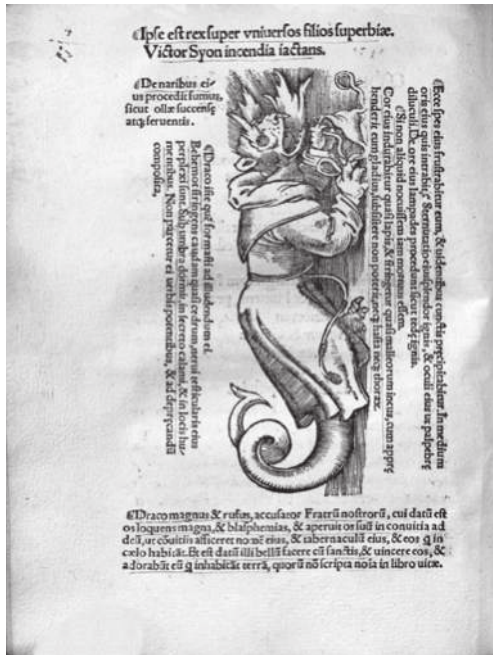 ⸿Ipse est rex super vniuersos filios superbiæ.
Victor Syon incendia iactans.
⸿De naribus ei-
us procedit fumus,
sicut ollæ succensę
atq; feruentis.
⸿Draco iste quē formasti ad illudendum ei.
Behemot stringens caudam quasi cedrum, nerui testicularis eius
perplexi sunt. Sub umbra dormit, in secreto calami, & in locis hu-
mentibus. Non parcetur ei uerbis potentibus, & ad deprecandū
composita.
⸿Ecce spes eius frustrabitur eum, & uidentibus cunctis pręcipitabitur. In medium
oris eius quis intrabit; Sternutatio eius splendor ignis, & oculi eius ut palpebrę
diluculi. De ore eius lampades procedunt sicut tedę ignis.
⸿Si non aliquid nocuissem iam mortuus essem.
Cor eius indurabitur quasi lapis, & stringetur quasi malleorum incus, cum appre
henderit eum gladius, subsistere non poterit, neq; hasta neq; thorax.
⸿Draco magnus & rufus, accusator Fratrū nostrorū, cui datū est
os loquens magna, & blasphemias, & aperuit os suū in conuitia ad
deū, ut cōuitiis afficeret nomē eius, & tabernaculū eius, & eos q in
cælo habitāt. Et est datū illi bellū facere cū sanctis, & uincere eos, &
adorabūt eū q inhabitāt terrā, quorū nō scripta noīa in libro uitæ.